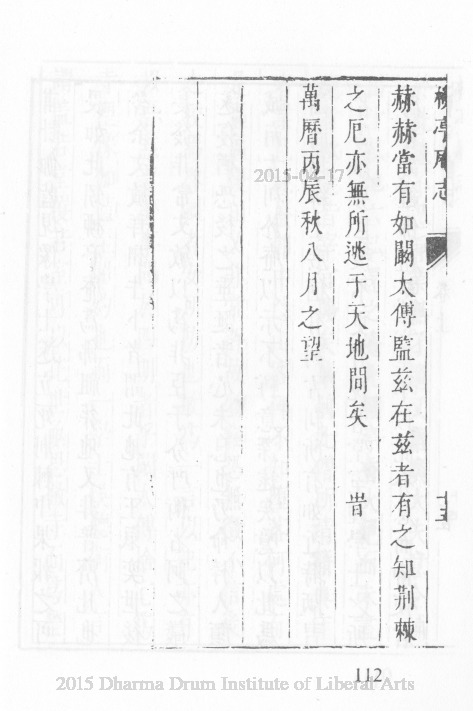 亭志
十五
赫赫當有如嗣太傅監茲在茲者有之知荆棘
之厄亦無所逃于天地間矣　旹
萬曆丙辰秋八月之望
2015-04-17
112
2015 Dharma Drum Institute of Liberal Arts